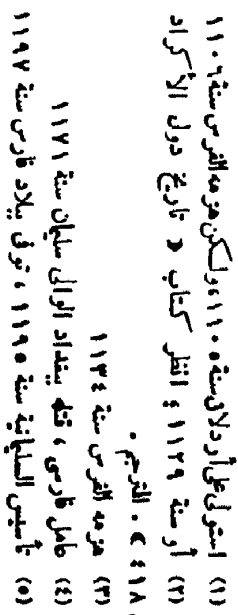 (١) استولى على أردلان سنة ١١٠٥، ولكن هزمه الفرس سنة ١١٠٦
(٢) أو سنة ١١٢٩؛ انظر كتاب « تاريخ دول الأكراد
٤١٨ » . المترجم .
(٣) هزمه الفرس سنة ١١٣٤
(٤) عامل فارسى ، قتله ببغداد الوالى سليمان سنة ١١٧١
(٥) تأسيس السليمانية سنة ١١٩٥ ، توفى ببلاد فارس سنة ١١٩٧